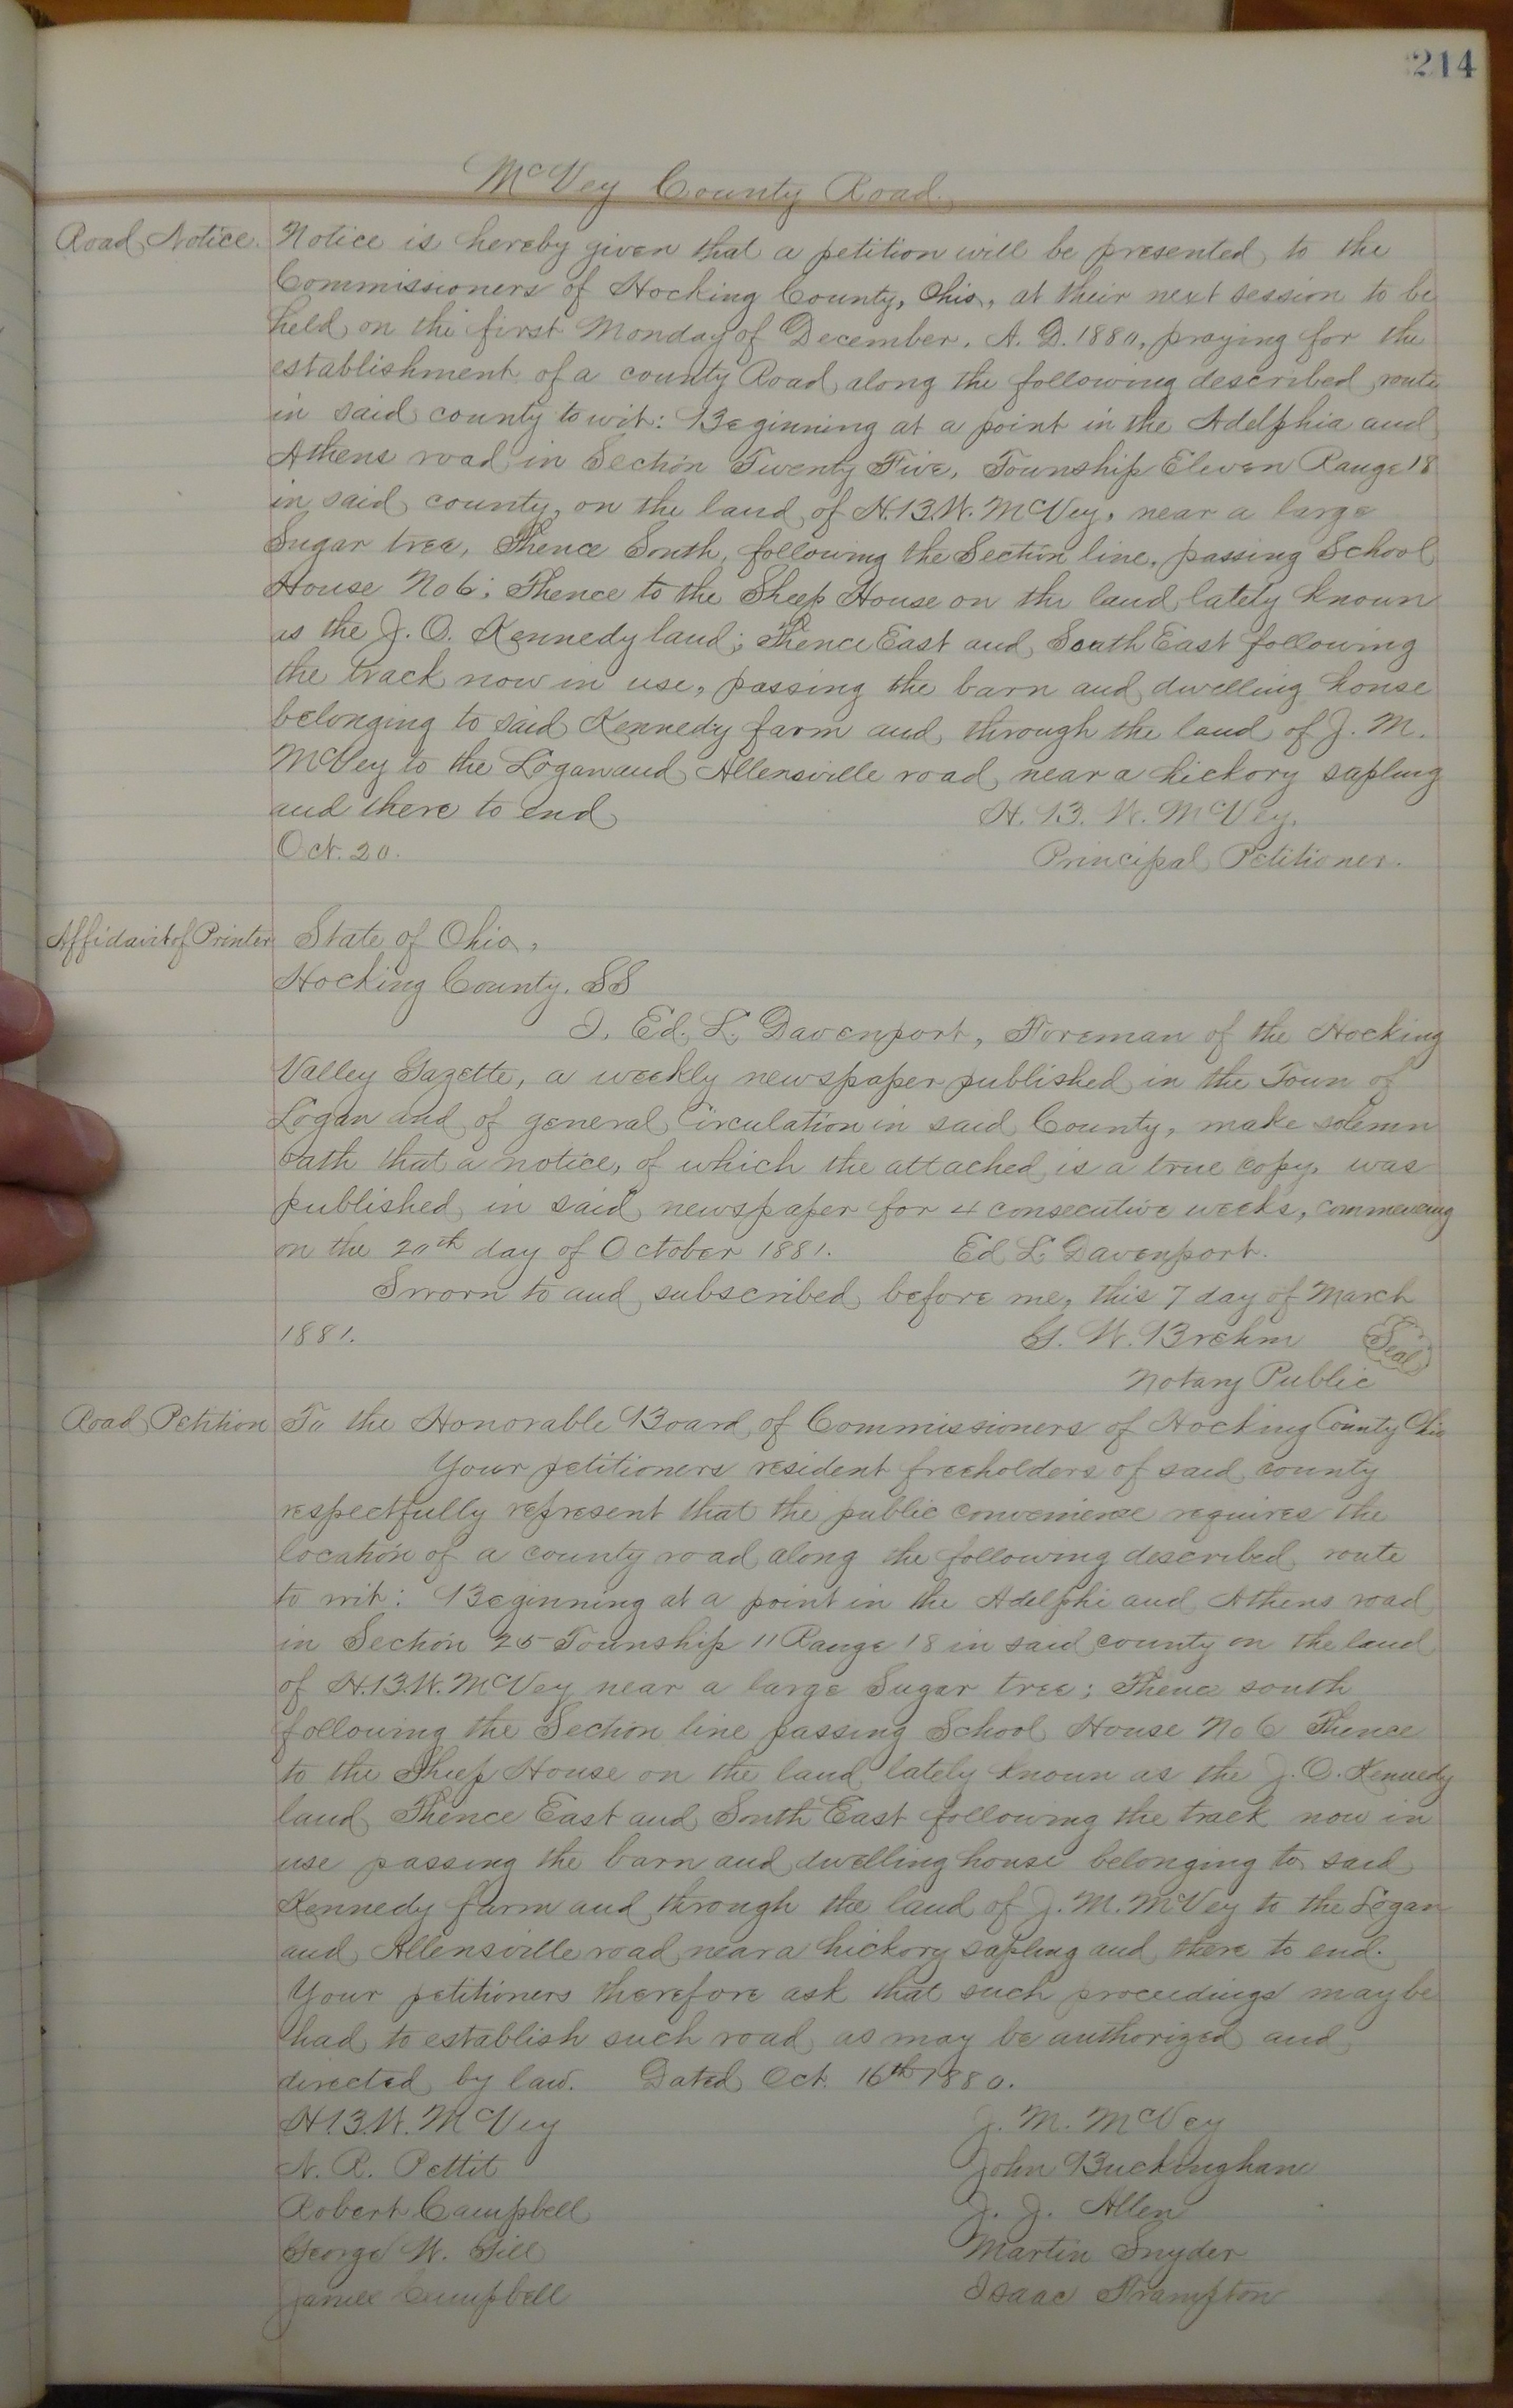 214
McVey County Road.
Road Notice. Notice is hereby given that a petition will be presented to the
Commissioners of Hocking County, Ohio, at their next session to be
held on the first Monday of December, A. D. 1880, praying for the
establishment of a county Road along the following described route
in said county to wit: Beginning at a point in the Adelphia and
Athens road in Section Twenty Five, Township Eleven Range 18
in said county, on the land of H.B.W. McVey, near a large
Sugar tree, Thence South, following the Section line, passing School
House No 6; Thence to the Sheep House on the land lately known
as the J. O. Kennedy land; Thence East and South East following
the track now in use, passing the barn and dwelling house
belonging to said Kennedy farm and through the land of J. M.
McVey to the Logan and Allensville road near a hickory sapling
and there to end H. B. W. McVey,
Oct. 20. Principal Petitioner.
Affidavit of Printer State of Ohio,
Hocking County, SS
I, Ed. L. Davenport, Foreman of the Hocking
Valley Gazette, a weekly newspaper published in the Town of
Logan and of general Circulation in said County, make solemn
oath that a notice, of which the attached is a true copy, was
published in said newspaper for 4 consecutive weeks, commencing
on the 20th day of October 1881. Ed L. Davenport.
Sworn to and subscribed before me, this 7 day of March
1881. G. W. Brehm Seal
Notary Public
Road Petition To the Honorable Board of Commissioners of Hocking County Ohio
Your petitioners resident freeholders of said county
respectfully represent that the public convenience requires the
location of a county road along the following described route
to wit: Beginning at a point in the Adelphi and Athens road
in Section 25 Township 11 Range 18 in said county on the land
of H.B.W. McVey near a large Sugar tree; Thence south
following the Section line passing School House No 6 Thence
to the Sheep House on the land lately known as the J. O. Kennedy
land Thence East and South East following the track now in
use passing the barn and dwelling house belonging to said
Kennedy farm and through the land of J. M. McVey to the Logan
and Allensville road near a hickory sapling and there to end.
Your petitioners therefore ask that such proceedings may be
had to establish such road as may be authorized and
directed by law. Dated Oct. 16th 1880.
H.B.W. McVey J. M. McVey
N. R. Pettit John Buckingham
Robert Campbell J. J. Allen
George W. Gill Martin Snyder
James Campbell Isaac Frampton